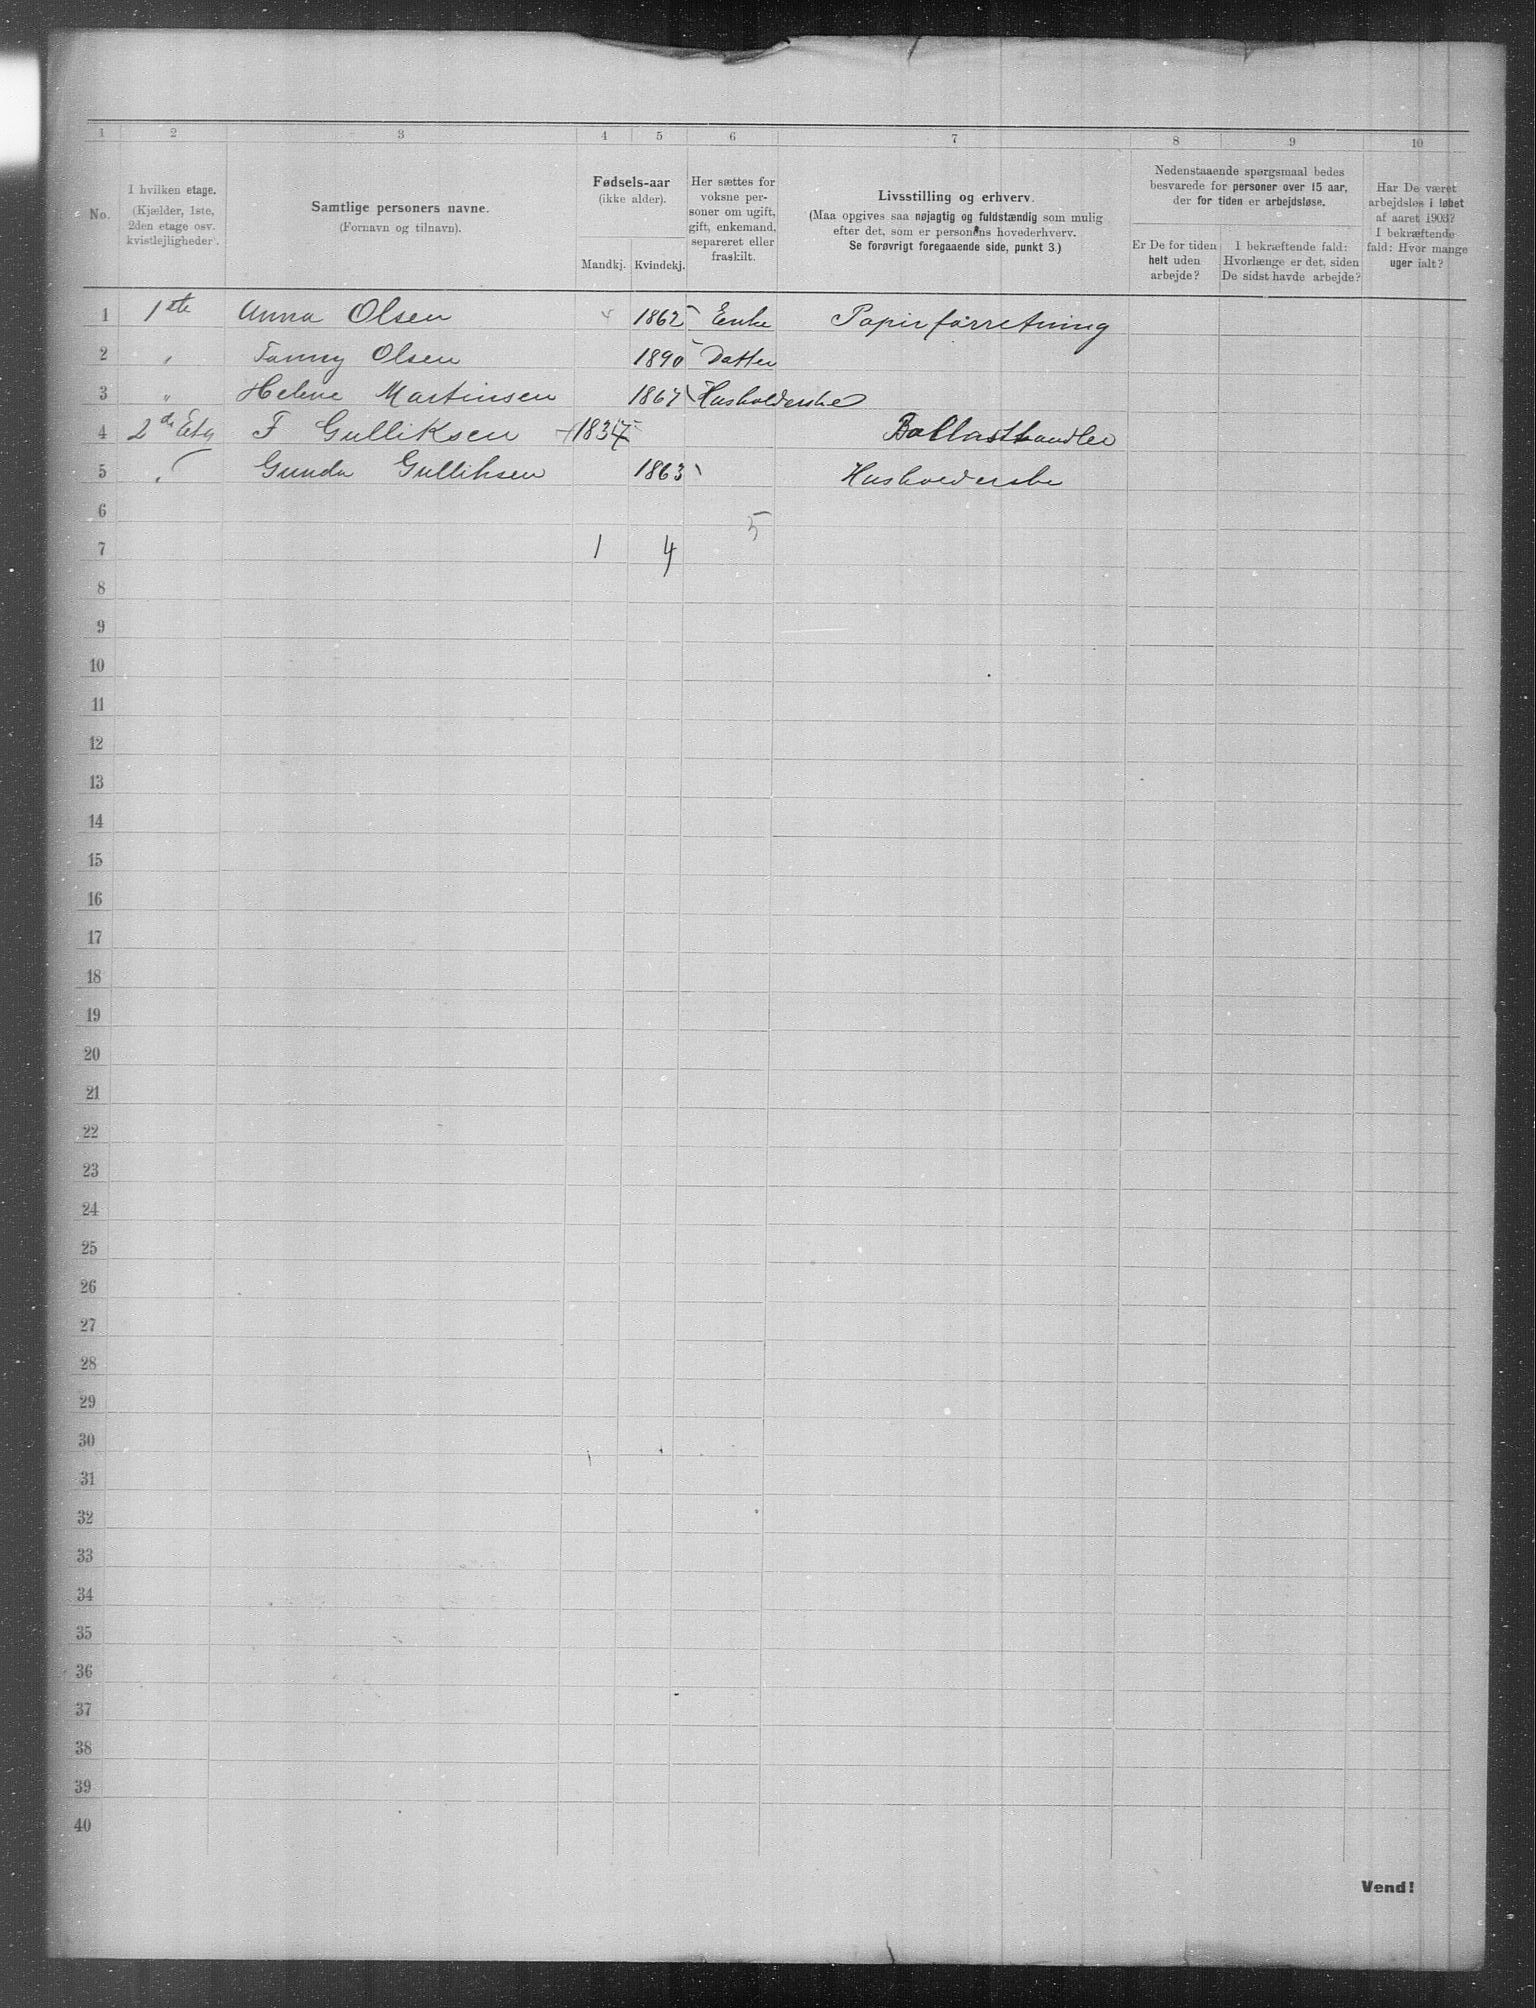 1 2 3 4 5 6 7 8 9 10
No.
I hvilken etage.
(Kjælder, 1ste,
2den etage osv.
kvistlejligheder).
Samtlige personers navne.
(Fornavn og tilnavn).
Fødsels-aar
(ikke alder).
Mandkj. Kvindekj.
Her sættes for
voksne per-
soner om ugift,
gift, enkemand,
separeret eller
fraskilt.
Livsstilling og erhverv.
(Maa opgives saa nøjagtig og fuldstændig som mulig
efter det, som er personens hovederhverv.
Se forøvrigt foregaaende side, punkt 3.)
Nedenstaaende spørgsmaal bedes
besvarede for personer over 15 aar,
der for tiden er arbejdsløse.
Er De for tiden
helt uden
arbejde?
I bekræftende fald:
Hvorlænge er det, siden
De sidst havde arbejde?
Har De været
arbejdsløs i løbet
af aaret 1903?
I bekræftende
fald: Hvor mange
uger ialt?
1 1ste Anna Olsen 1862 Enke Papirforretning
2 " Fanny Olsen 1890 Datter
3 " Helene Martinsen 1867 Husholderske
4 2de Etg F Gulliksen 1837 Ballasthandler
5 " Gunda Gulliksen 1863 Husholderske
6 5
7 1 4
8
9
10
11
12
13
14
15
16
17
18
19
20
21
22
23
24
25
26
27
28
29
30
31
32
33
34
35
36
37
38
39
40
Vend!